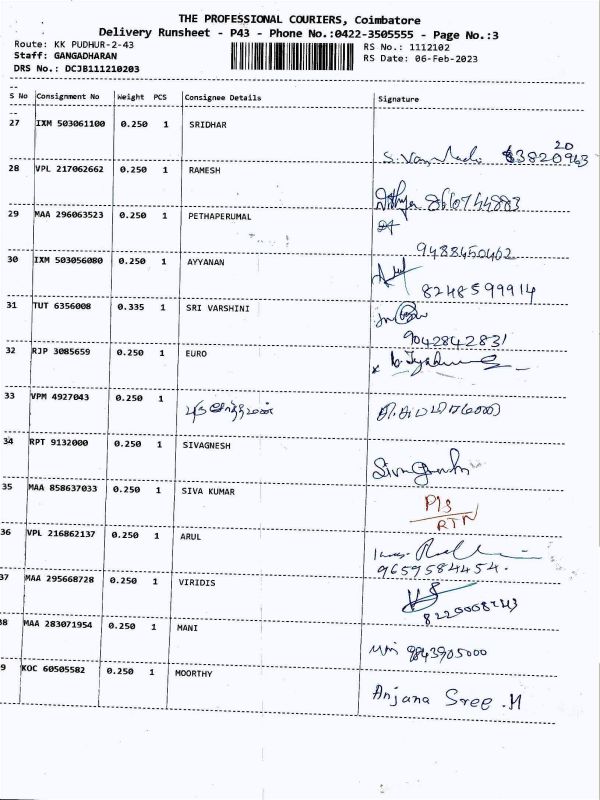 THE PROFESSIONAL COURIERS, Coimbatore
Delivery Runsheet - P43 - Phone No.:0422-3505555 - Page No.:3
Route: KK PUDHUR-2-43
RS No.: 1112102
Staff: GANGADHARAN
RS Date: 06-Feb-2023
DRS No.: DCJB111210203
S No Consignment No Weight PCS Consignee Details Signature
27 IXM 503061100 0.250 1 SRIDHAR
20
28 VPL 217062662 0.250 1 RAMESH
Nithya 8660744883
29 MAA 296063523 0.250 1 PETHAPERUMAL
9488450462
30 IXM 503056080 0.250 1 AYYANAN
8248599914
31 TUT 6356008 0.335 1 SRI VARSHINI
9042842831
32 RJP 3085659 0.250 1 EURO
33 VPM 4927043 0.250 1
34 RPT 9132000 0.250 1 SIVAGNESH
35 MAA 858637033 0.250 1 SIVA KUMAR
RTN
36 VPL 216862137 0.250 1 ARUL
9659584454.
37 MAA 295668728 0.250 1 VIRIDIS
38 MAA 283071954 0.250 1 MANI
9843905000
9 KOC 60505582 0.250 1 MOORTHY
Anjana Sree .M